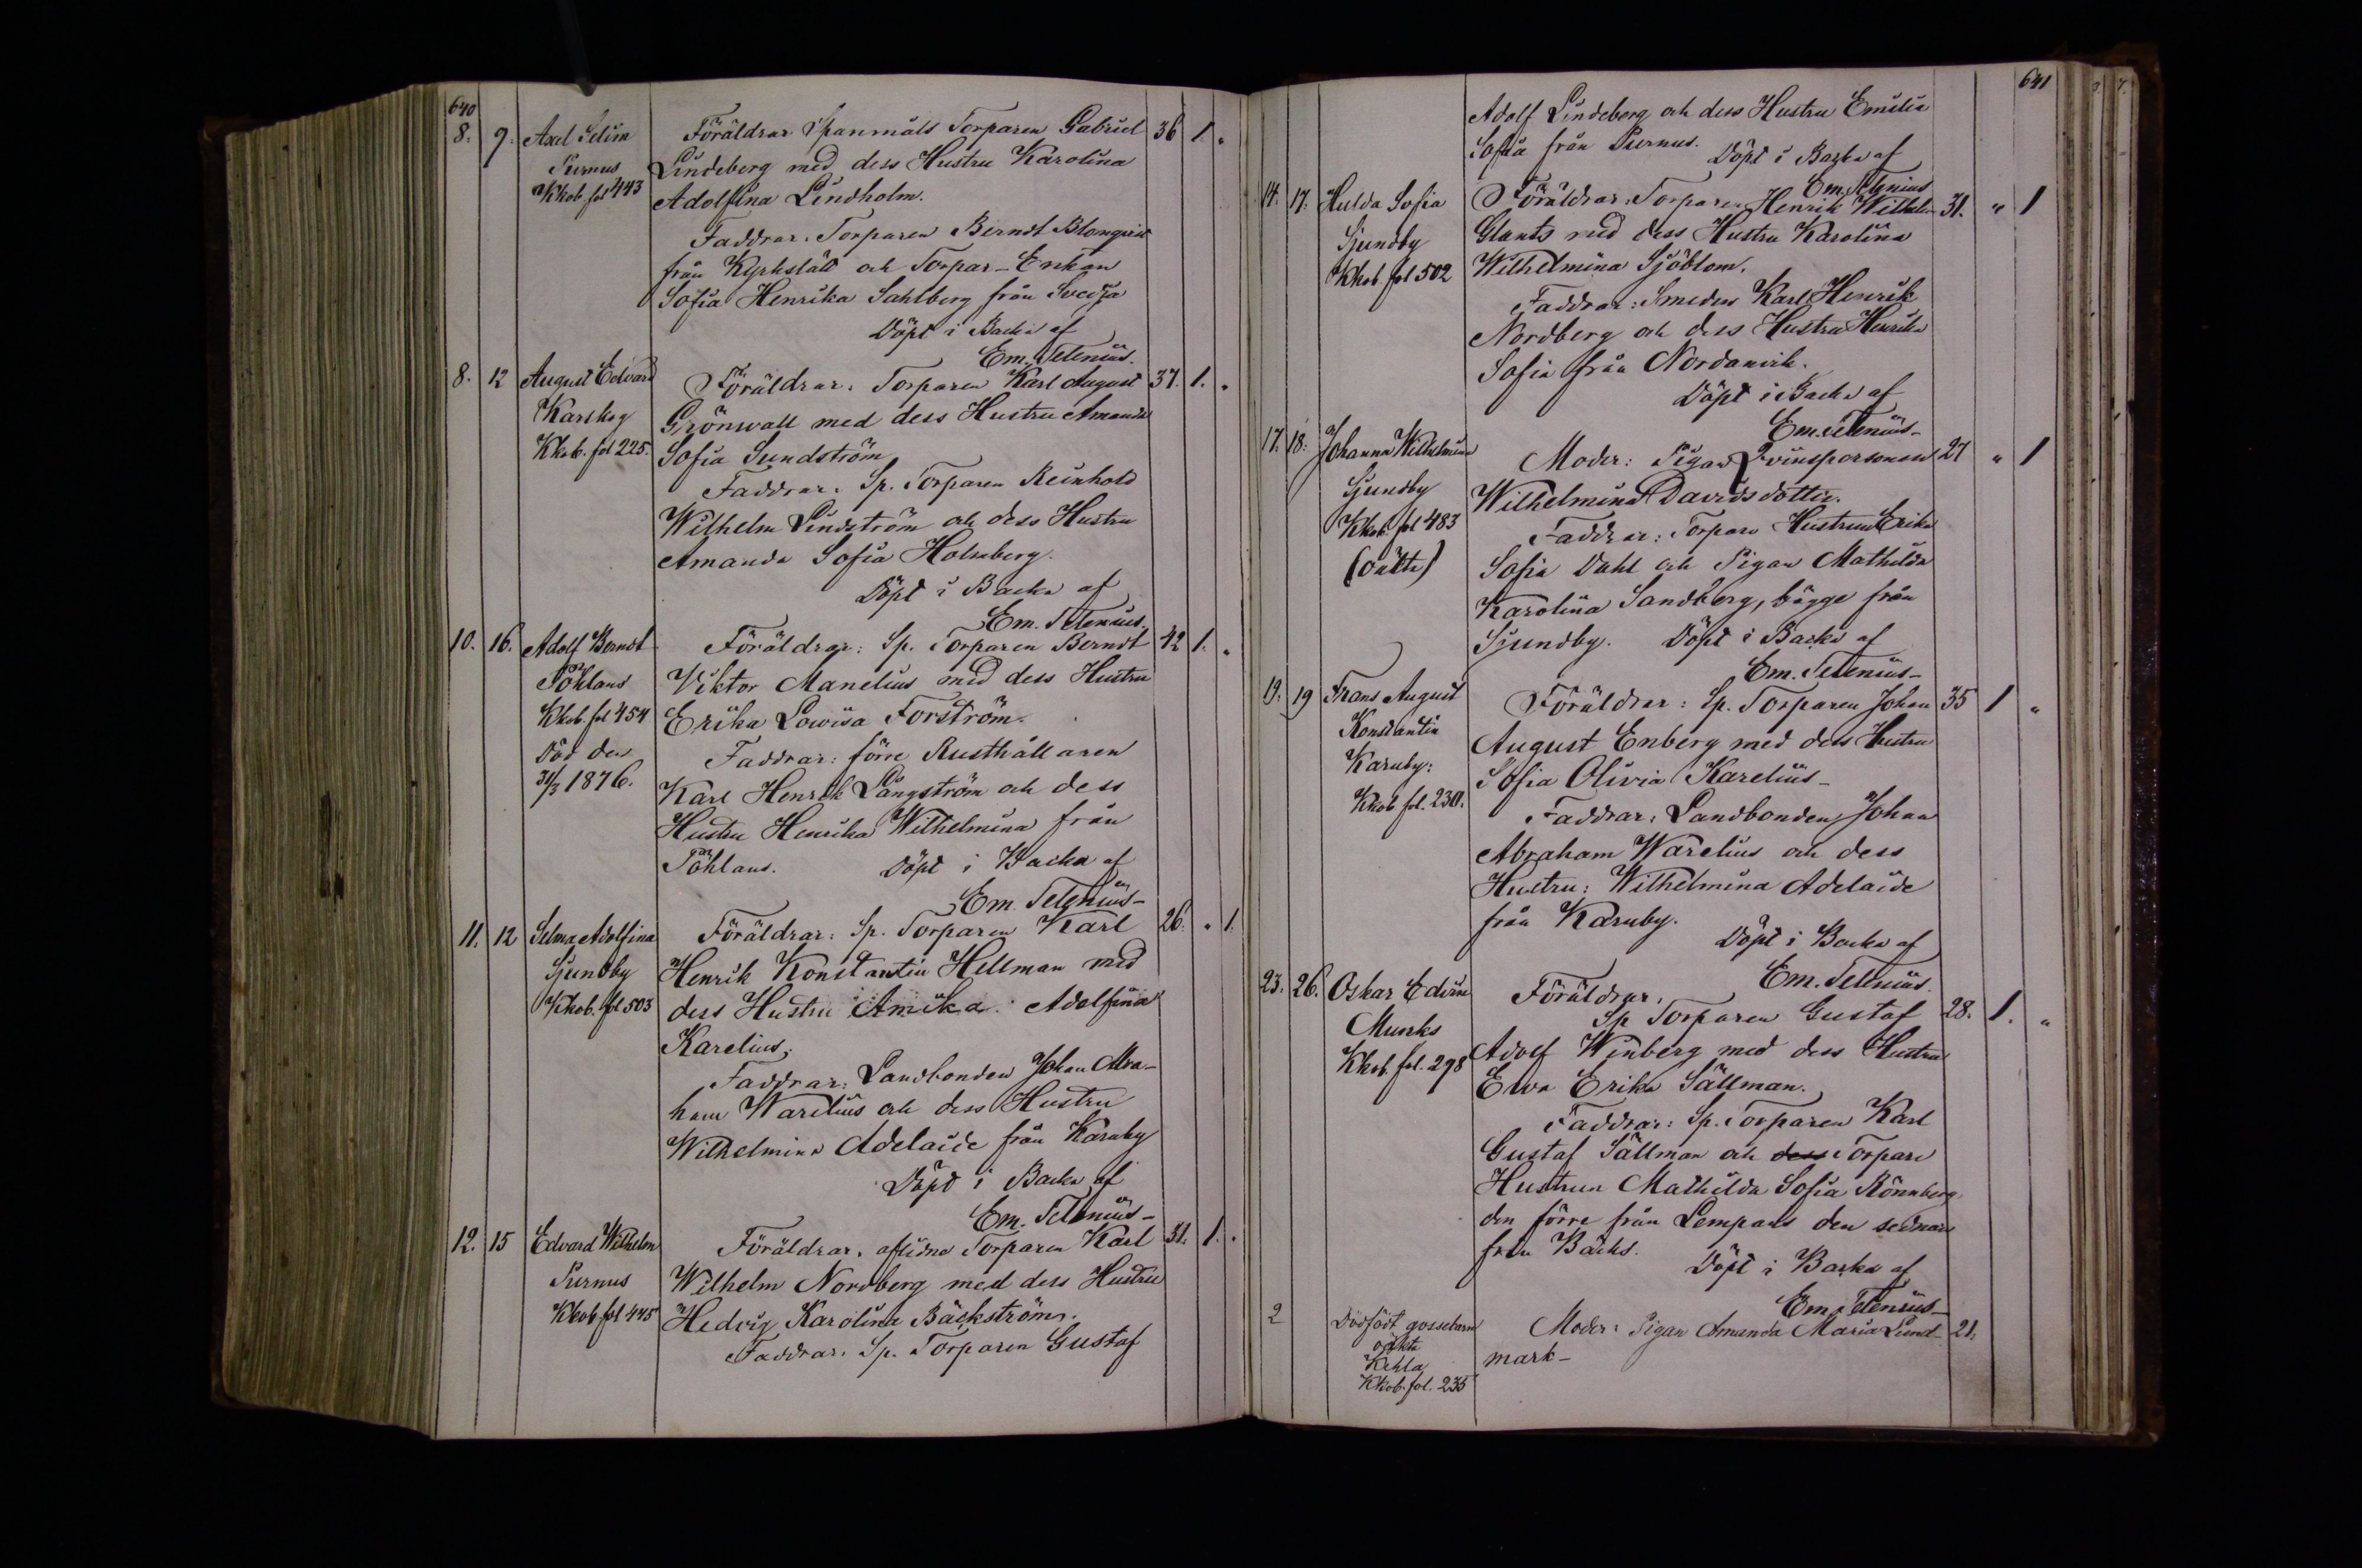 640
8. 9. Axel Selim Föräldrar Spanmåls Torparen Gabriel 36 1. "
Purnus Lindeberg med dess Hustru Karolina
Kkob. fol 443 Adolfina Lindholm.
Faddrar: Torparen Berndt Blomqvist
från Kyrkslätt och Torpar-Enkan
Sofia Henrika Sahlberg från Svedja
Döpt i Backa af
Em. Telenius.
8. 12 August Edvard Föräldrar: Torparen Karl August 37. 1. "
Karskog Grönwall med dess Hustru Amanda
Kkob. fol 225. Sofia Sundström
Faddrar: Sp. Torparen Reinhold
Wilhelm Lindström och dess Hustru
Amanda Sofia Holmberg.
Döpt i Backa af
Em. Telenius.
10. 16. Adolf Berndt Föräldrar: Sp. Torparen Berndt 42 1. "
Påhlans Viktor Manelius med dess Hustru
Kkob. fol 454 Erika Lowisa Forström.
Död den Faddrar: förre Rusthållaren
31/3 1876. Karl Henrik Långström och dess
Hustru Henrika Wilhelmina från
Påhlans. Döpt i Backa af
Em. Telenius-
11. 12 Selma Adolfina Föräldrar: Sp. Torparen Karl 26. " 1.
Sjundby Henrik Konstantin Hellman med
Kkob. fol 503 dess Hustru Amika Adolfina
Karelius;
Faddrar: Landbonden Johan Abra-
ham Warelius och dess Hustru
Wilhelmina Adelaide från Karuby
Döpt i Backa af
Em. Telenius-
12. 15 Edvard Wilhelm Föräldrar: aflidne Torparen Karl 31. 1. "
Purnus Wilhelm Nordberg med dess Hustru
Kkob fol 445 Hedvig Karolina Bäckström.
Faddrar: Sp. Torparen Gustaf
641
Adolf Lindeberg och dess Hustru Emilia
Sofia från Purnus. Döpt i Backa af
Em. Telenius
14. 17. Hulda Sofia Föräldrar: Torparen Henrik Wilhelm 31. " 1
Sjundby Glants med dess Hustru Karolina
Kkob. fol 502 Wilhelmina Sjöblom.
Faddrar: Smeden Karl Henrik
Nordberg och dess Hustru Henrika
Sofia från Nordanvik.
Döpt i Backa af
Em. Telenius-
17. 18. Johanna Wilhelmina Moder: Pigan Qvinspersonen 27 " 1
Sjundby Wilhelmina Davidsdotter.
Kkob. fol 483 Faddrar: Torpare Hustrun Erika
(oäkta) Sofia Dahl och Pigan Mathilda
Karolina Sandberg, bägge från
Sjundby. Döpt i Backa af
Em. Telenius-
19. 19 Frans August Föräldrar: Sp. Torparen Johan 35 1 "
Konstantin August Enberg med dess Hustru
Karuby: Sofia Olivia Karelius-
Kkob. fol. 230. Faddrar: Landbonden Johan
Abraham Warelius och dess
Hustru: Wilhelmina Adelaide
från Karuby. Döpt i Backa af
Em. Telenius.
23. 26. Oskar Edvin Föräldrar:
Sp Torparen Gustaf 28. 1. "
Munks Adolf Winberg med dess Hustru
Kkob. fol. 298 Ewa Erika Sällman.
Faddrar: Sp. Torparen Karl
Gustaf Sällman och dess Torpare
Hustrun Mathilda Sofia Rönnberg,
den förre från Lempans den sednare
från Bäcks. Döpt i Backa af
Em. Telenius-
2 Dödfödt gossebarn Moder: Pigan Amanda Maria Lund- 21.
oäkta mark-
Kehla
Kkob. fol. 235